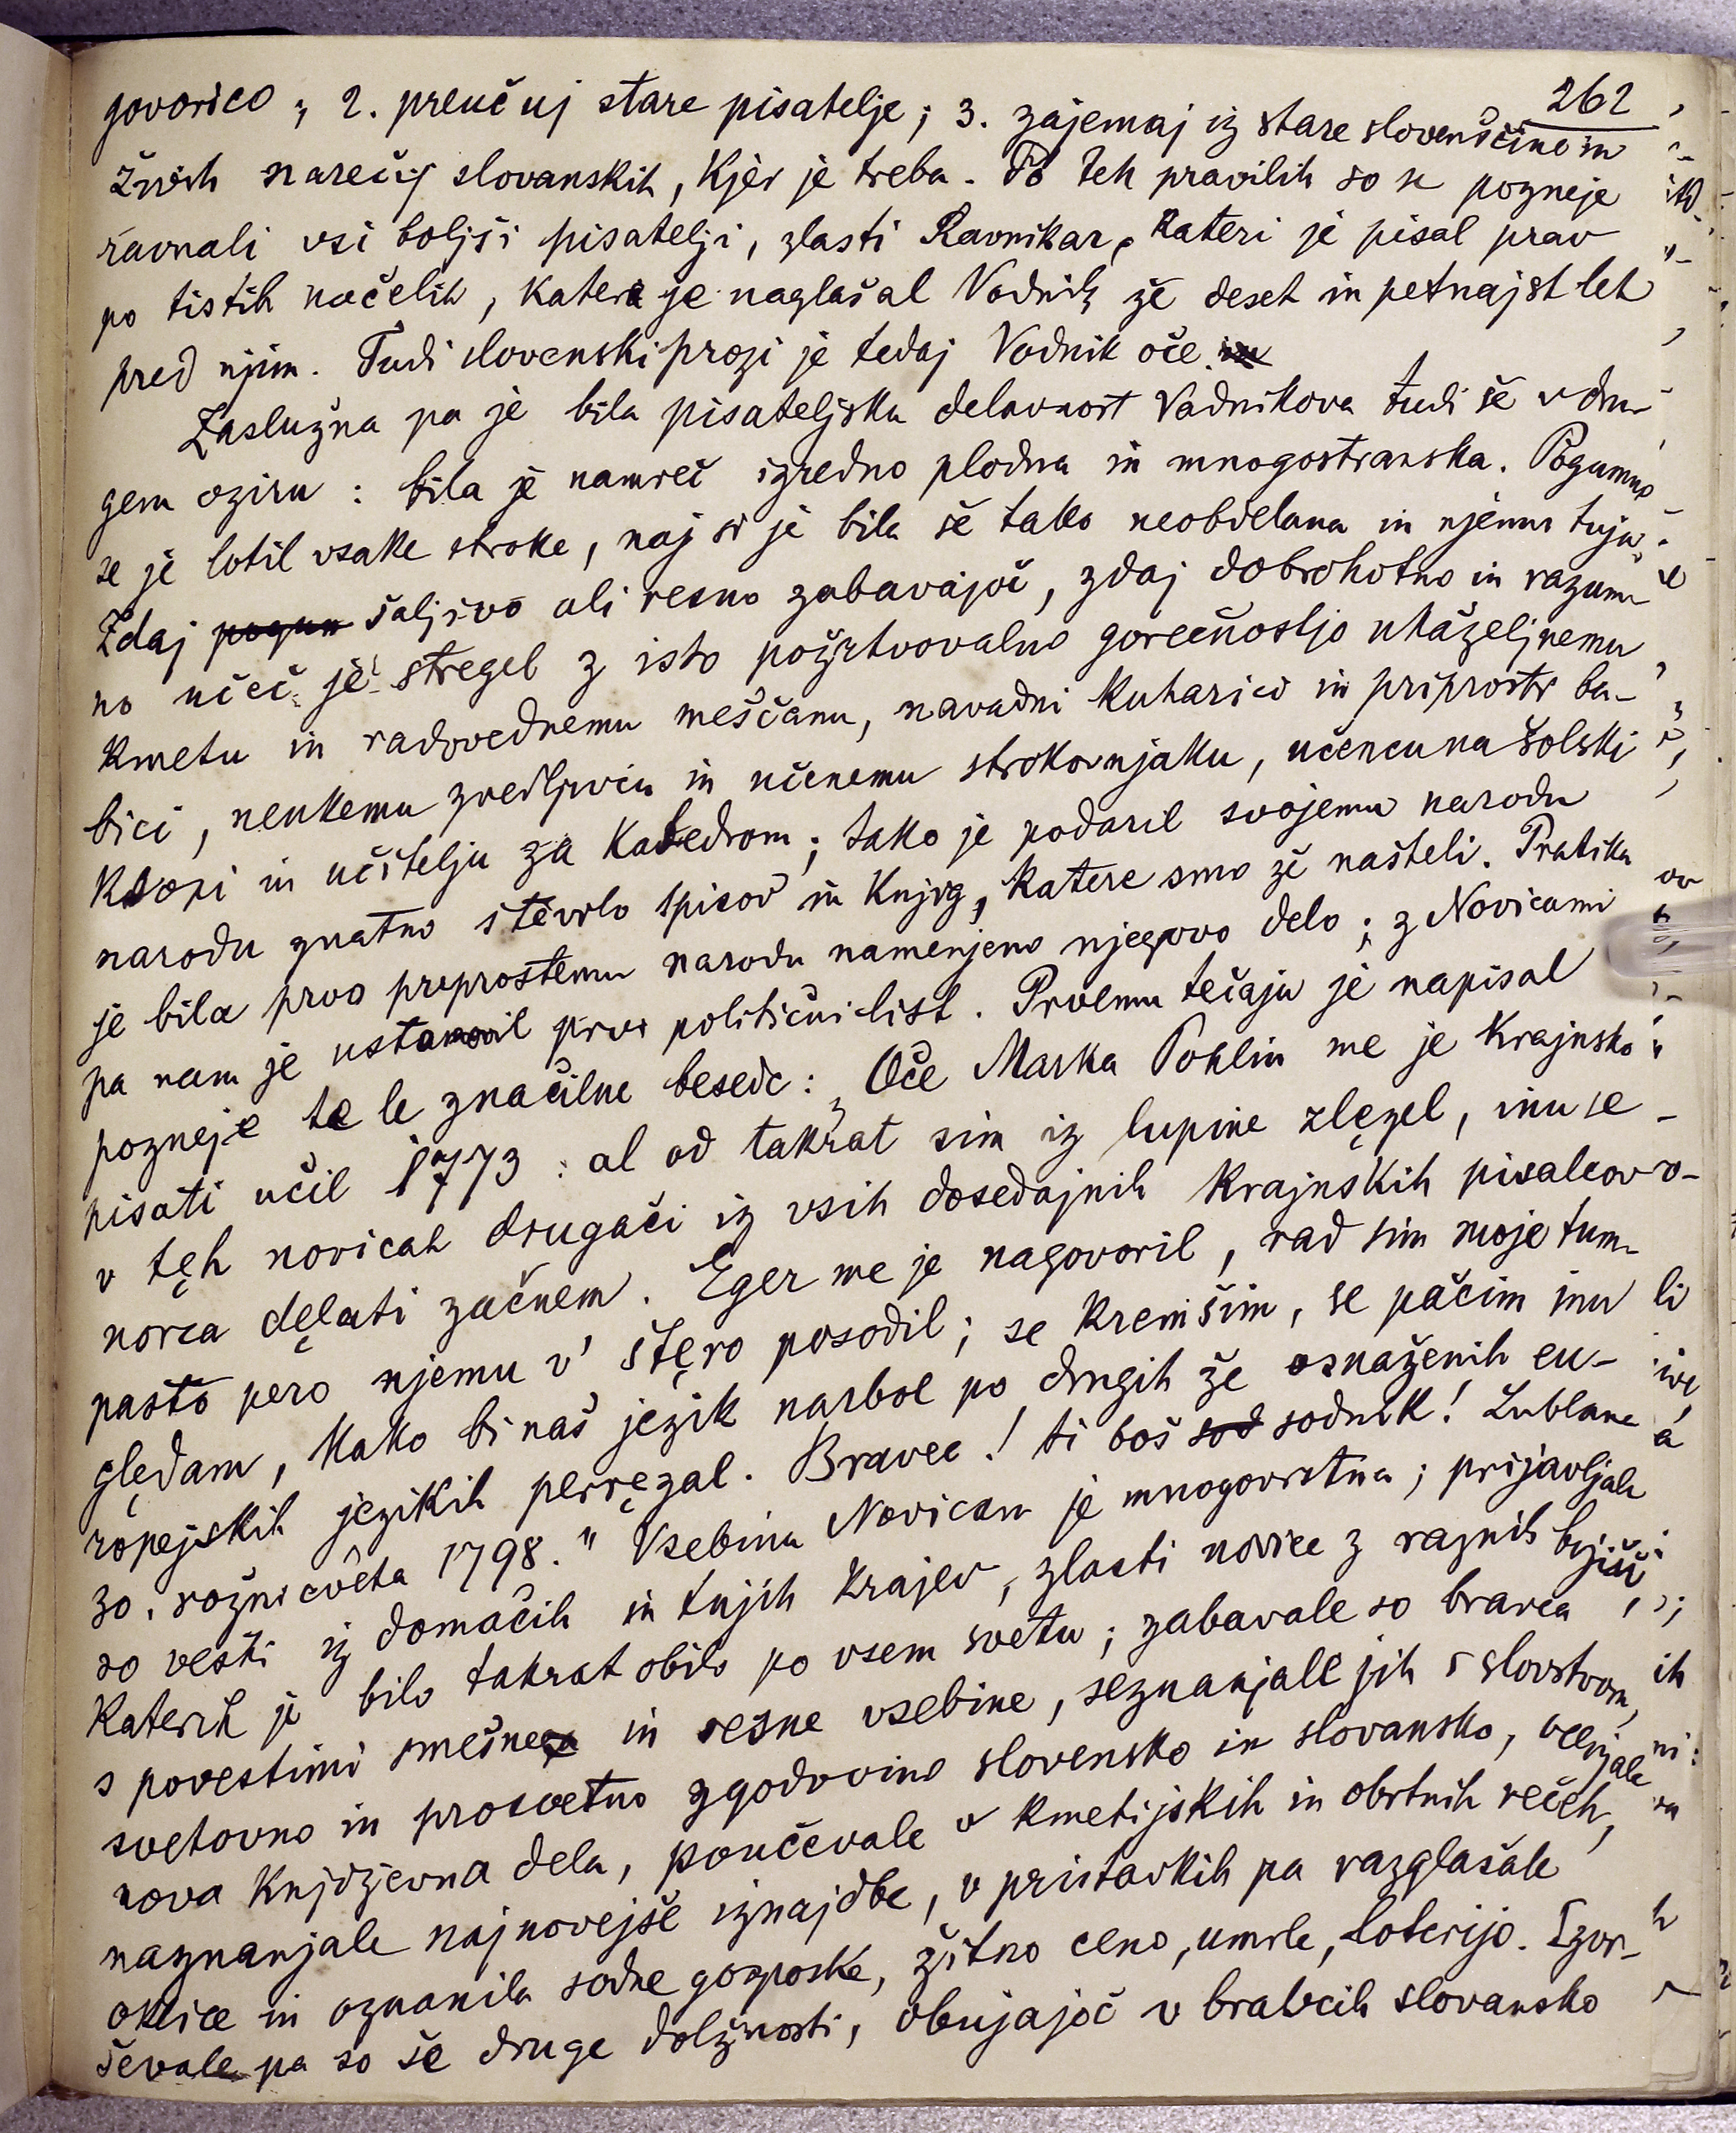 262
govorico; 2. preučuj stare pisatelje; 3. zajemaj iz stare slovenščine in
živih narečij slovanskih, kjer je treba. Po teh pravilih so se pozneje
ravnali vsi boljši pisatelji, zlasti Ravnikar, kateri je pisal prav
po tistih načelih, katera je naglašal Vodnik že deset in petnajst let
pred njim. Tudi slovenski prozi je tedaj Vodnik oče.
Zaslužna pa je bila pisateljska delavnost Vodnikova tudi še v dru-
gem oziru: bila je namreč izredno plodna in mnogostranska. Pogumno
se je lotil vsake stroke, naj si je bila še tako neobdelana in njemu tuja.
Zdaj šaljivo ali resno zabavajoč, zdaj dobrohotno in razum-
no učeč je stregel z isto požrtvovalno gorečnostjo ukaželjnemu
kmetu in radovednemu meščanu, navadni kuharici in priprosti ba-
bici, neukemu zvedljivcu in učenemu strokovnjaku, učencu na šolski
klopi in učitelju za katedrom; tako je podaril svojemu narodu
narodu znatno število spisov in knjig, katere smo že našteli. Pratika
je bila prvo priprostemu narodu namenjeno njegovo delo; z Novicami
pa nam je ustanovil prvi politični list. Prvemu tečaju je napisal
pozneje te le značilne besede: „Oče Marka Pohlin me je krajnsko
pisati učil 1773: al od takrat sim iz lupine zlęzel, inu se
v tęh novicah drugači iz vsih dosedajnih krajnskih pisalcov
norca dęlati začnem. Eger me je nagovoril, rad sim moje tum-
pasto pero njemu v' štęro posodil; se kremšim, se pačim inu
ględam, kako bi naš jezik narbol po drugih že osnaženih eu-
ropejskih jezikih perręzal. Bravec! ti boš sodnik! Lublana
30. rožnicvêta 1798." Vsebina Novicam je mnogovrstna; prijavljale
so vesti iz domačih in tujih krajev, zlasti novice z raznih bojišč,
katerih je bilo takrat obilo po vsem svetu; zabavale so bravca
s povestimi smešne in resne vsebine, seznanjale jih s slovstvom,
svetovno in prosvetno zgodovino slovensko in slovansko, ocenjale
nova književna dela, poučevale v kmetijskih in obrtnih rečeh,
naznanjale najnovejše iznajdbe, v pristavkih pa razglašale
oklice in oznanila sodne gosposke, žitno ceno, umrle, loterijo. Izvr-
ševale pa so še druge dolžnosti, obujajoč v bralcih slovansko